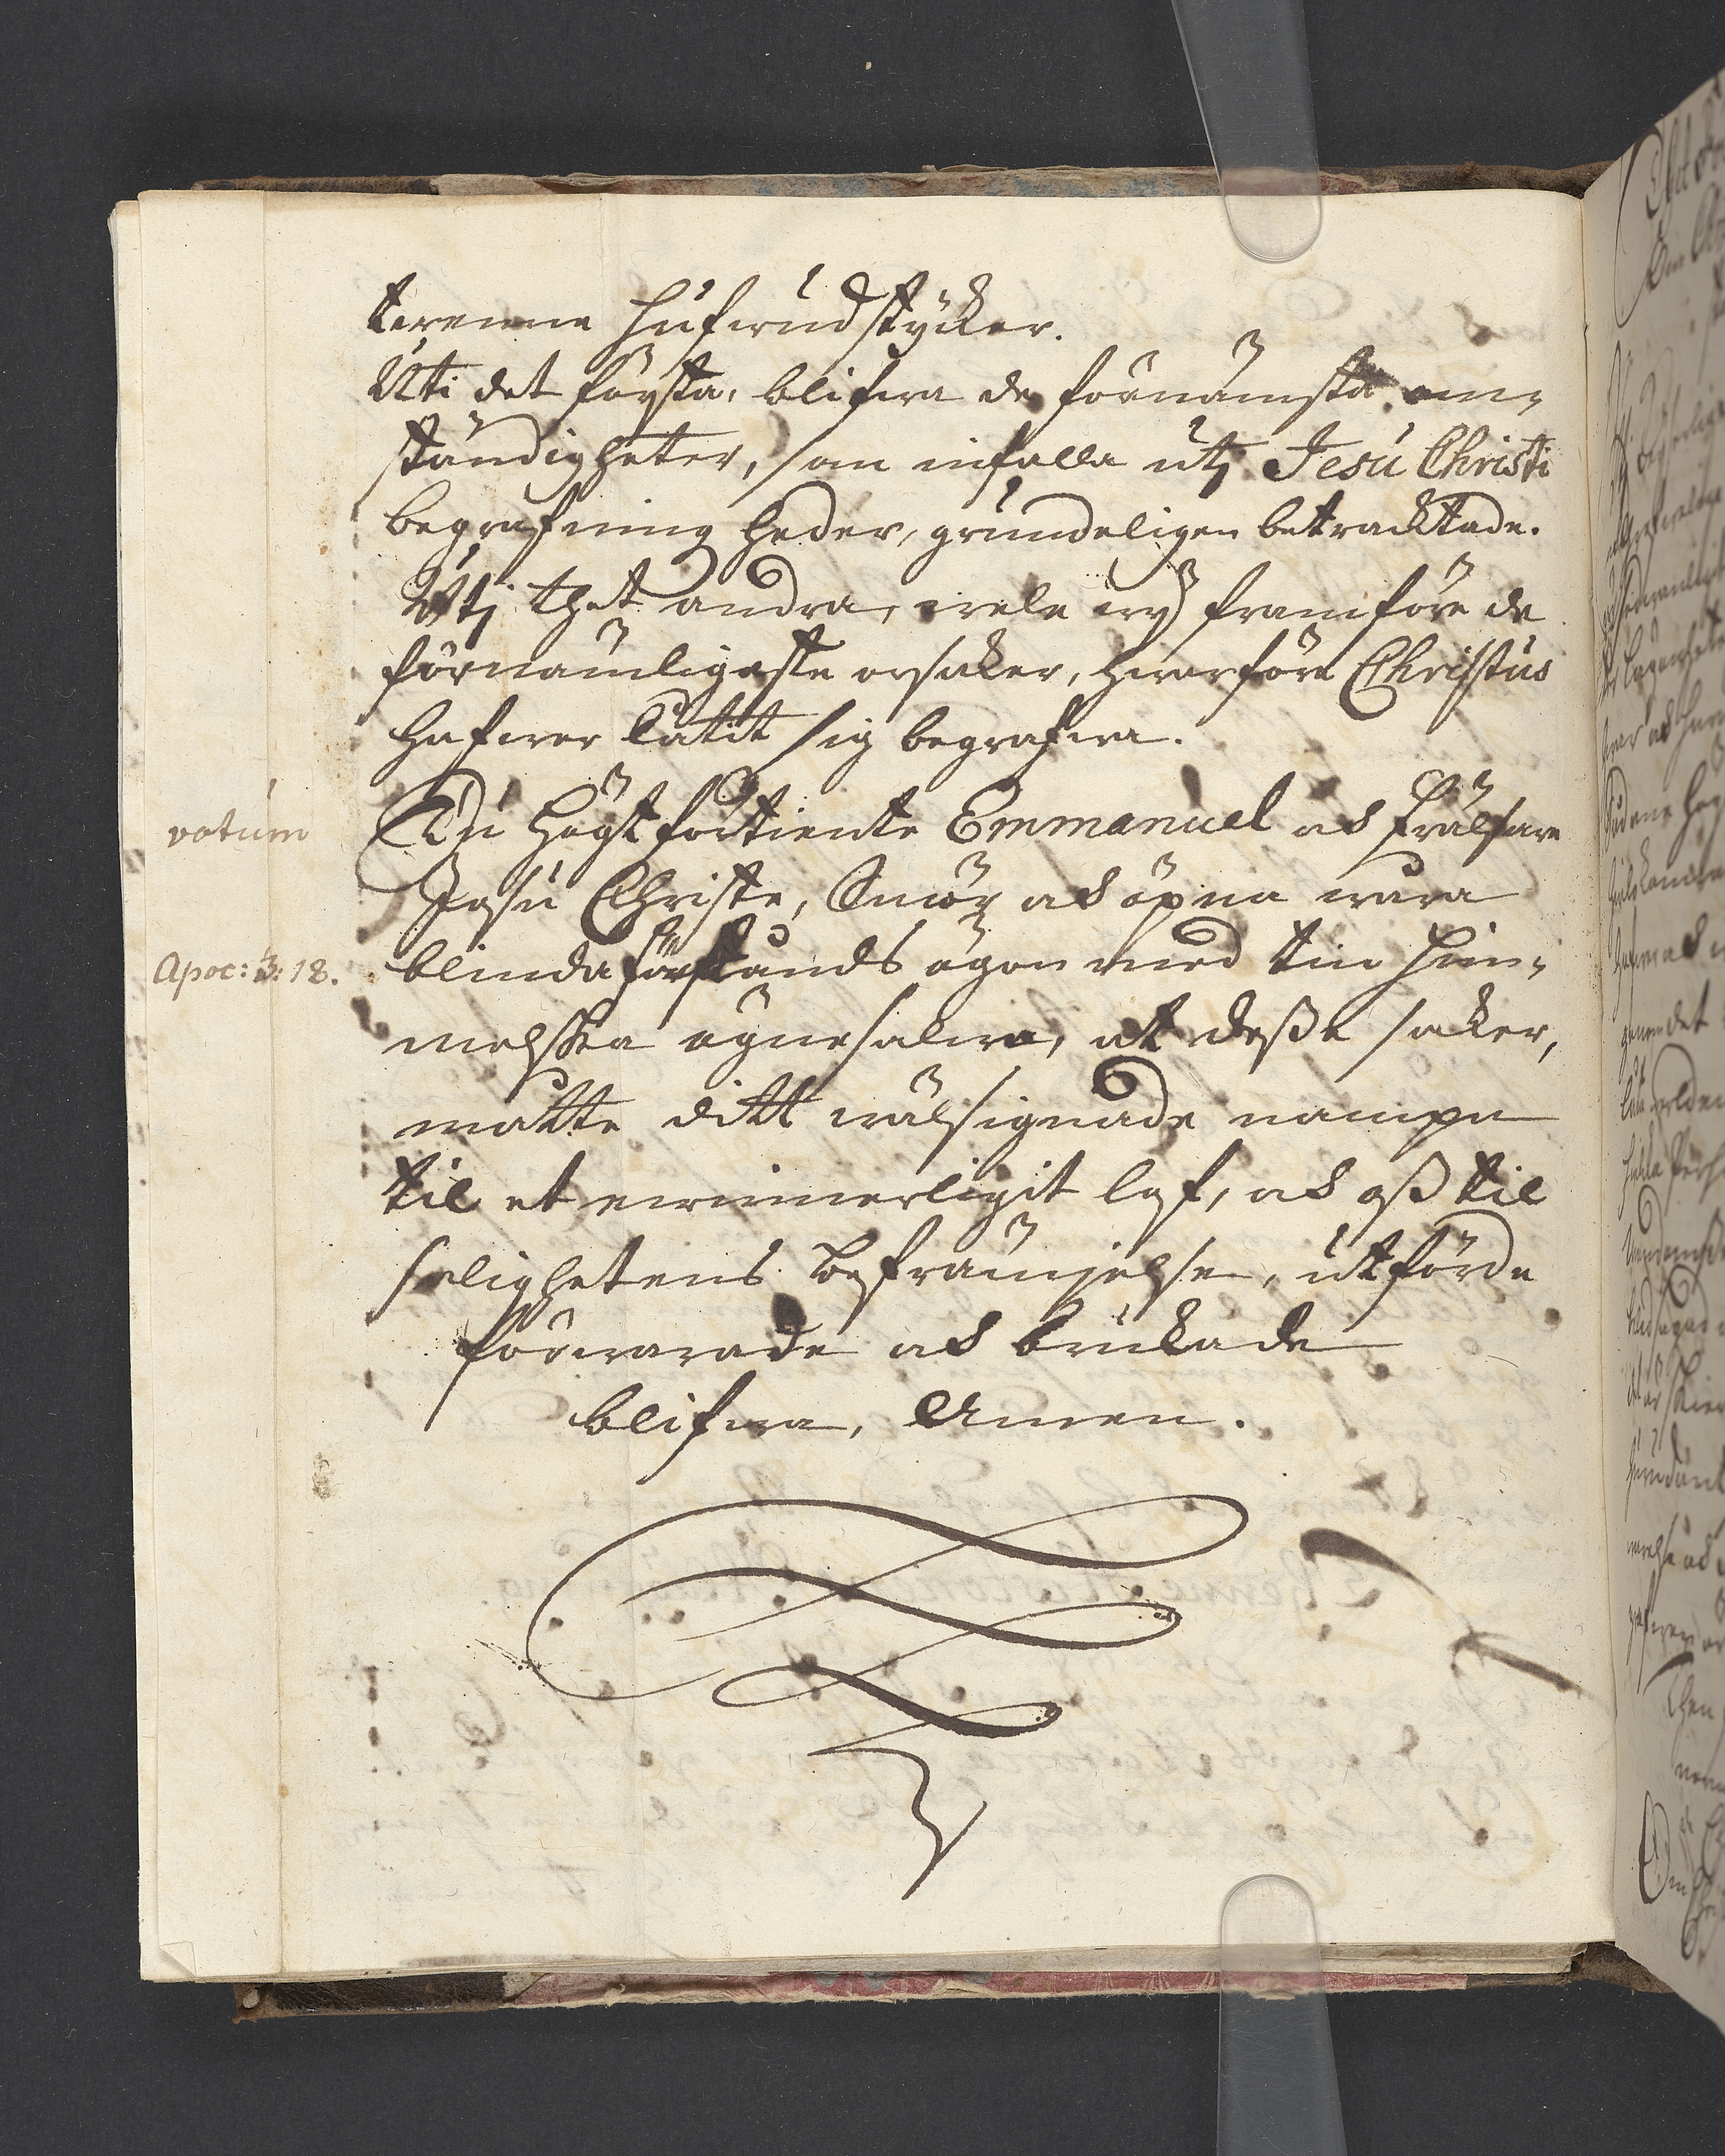 twenne hufwudstycker.
Uti det första, blifwa de förnämsta om-
ständigheter, som infalla utj Jesu Christi
begrafning heder, grundeligen betracktade.
Utj thet andra, wele wij framföre de
förnämligaste orsaker, hwarföre Christus
hafwer låtit sig begrafwa.
votum
Du högtförtiente Emmanuel ock frälsare
Jesu Christe, Smörj ock öpna wåra
Apoc: 3: 18.
blinda förstånds ögon med tin him-
melska ögnesalwa, at deße saker,
måtte ditt wälsignade nampn
til et ewinnerligit lof, ock oß til
salighetens befrämjelse, utförde
förwarade ock brukade
blifwa, Amen.